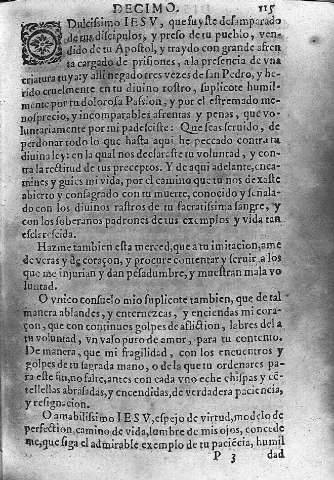 DECIMO. 115
O Dulcissimo IESV, que fuyste desamparado
de tus discipulos, y preso de tu pueblo, ven-
dido de tu Apostol, y traydo con grande afren
ta cargado de prisiones, a la presencia de vna
criatura tuya: y alli negado tres vezes de san Pedro, y he-
rido cruelmente en tu diuino rostro, suplicote humil-
mente por tu dolorosa Passion, y por el estremado me-
nosprecio, y incomparables afrentas y penas, que vo-
luntariamente por mi padesciste: Que seas seruido, de
perdonar todo lo que hasta aqui he peccado contra tu
diuina ley: en la qual nos declaraste tu voluntad, y con-
tra la rectitud de tus preceptos. Y de aqui adelante, enca-
mines y guies mi vida, por el camino que tu nos dexaste
abierto y consagrado con tu muerte, conocido y señala-
do con los diuinos rastros de tu sacratissima sangre, y
con los soberanos padrones de tus exemplos y vida tan
esclarescida.
Hazme tambien esta merced, que a tu imitacion, ame
de veras y de coraçon, y procure contentar y seruir a los
que me injurian y dan pesadumbre, y muestran mala vo
luntad.
O vnico consuelo mio suplicote tambien, que de tal
manera ablandes, y enternezcas, y enciendas mi cora-
çon, que con continuos golpes de afliction, labres del a
tu voluntad, vn vaso puro de amor, para tu contento.
De manera, que mi fragilidad, con los encuentros y
golpes de tu sagrada mano, o de la que tu ordenares pa-
ra este fin, no salte, antes con cada vno eche chispas y cē-
tellellas abrasadas, y encendidas, de verdadera paciencia,
y resignacion.
O amabilissimo IESV, espejo de virtud, modelo de
perfection, camino de vida, lumbre de mis ojos, concede
me, que siga el admirable exemplo de tu paciēcia, humil
P 3 dad